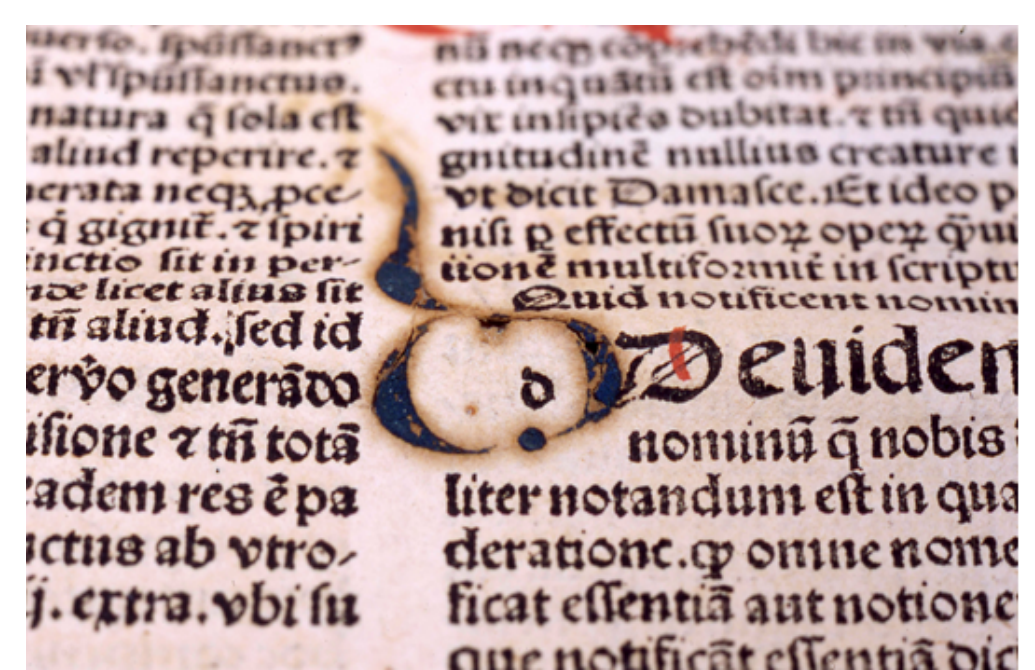 uerso. spūssanct9
vl' spūssanctus.
natura q̄ sola est
aliud reperire. ⁊
nerata neqꝫ pce-
q̇ gignit̄. ⁊ spiri
inctio sit in per-
nde licet alius sit
tn̄ aliud. sed id
ervo generādo
isione ⁊ tn̄ totā
eadem res ē pa
nctus ab vtro-
j. extra. vbi su
in via.
ctu inquātū est oīm principiū
vix insipiēs dubitat. ⁊ tn̄ quid
gnitudinē nullius creature
vt dicit Damasce. Et ideo p
nisi ꝑ effectū suoꝝ opeꝝ
tionē multiformit̄ in scriptu
Quid notificent nomin
d
Deuiden
nominū q̄ nobis
liter notandum est in qua
deratione. ꝙ omne nome
ficat essentiā aut notione
que notificāt essentiā dic